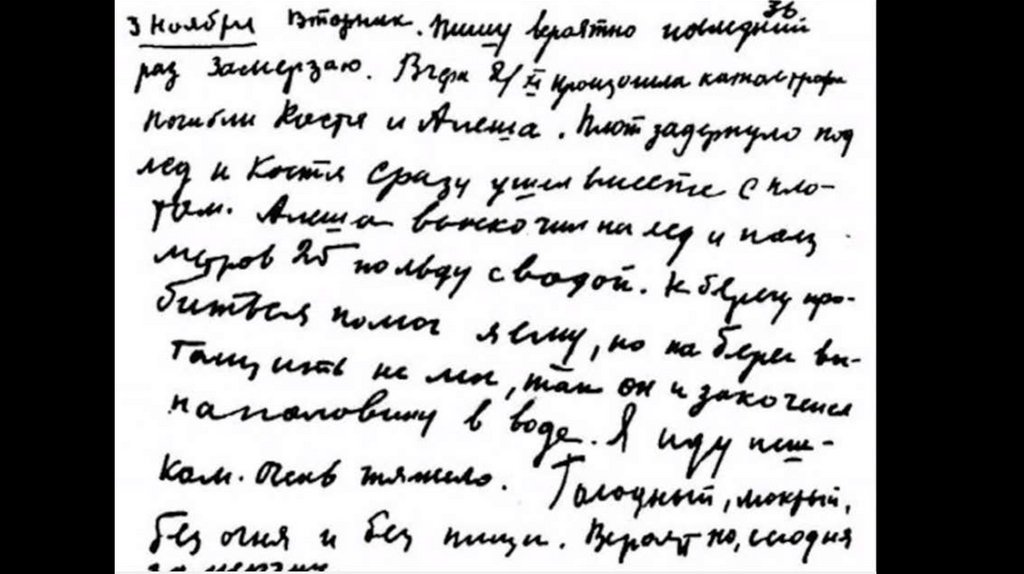 36
3 Ноября Вторник. Пишу вероятно последний
раз Замерзаю. Вчера 2/XI произошла катастрофа
погибли Костя и Алеша. Плот задернуло под
лед и Костя сразу ушел вместе с пло-
том. Алеша выскочил на лед и полз
метров 25 по льду с водой. К берегу про-
биться помог я ему, но на берег вы-
тащить не мог, так он и закоченел
наполовину в воде. Я иду пеш-
ком. Очень тяжело. Голодный, мокрый,
без огня и без пищи. Вероятно, сегодня
замерзну